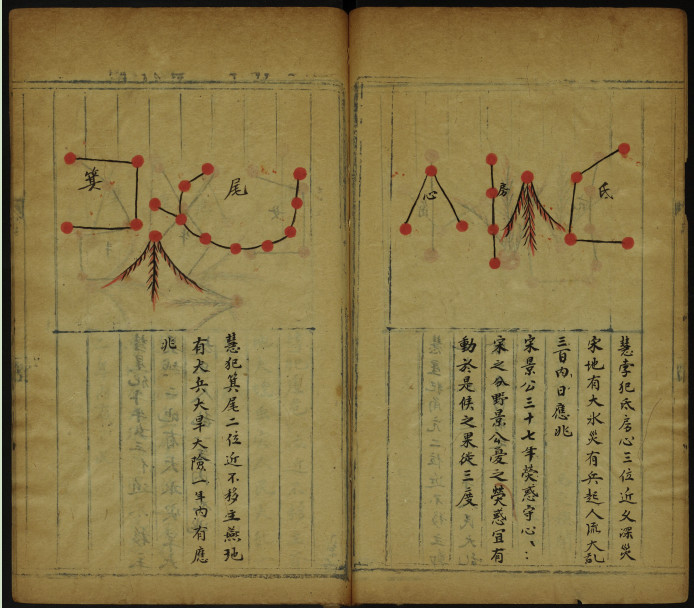 氐
房
心
彗孛犯氐房心三位近久深災
宋地有大水災有兵起人流大乱
三百內日應兆
宋景公三十七年熒惑守心心
宋之分野景公憂之熒惑宜有
動於是候之果徙三度
尾
箕
慧犯箕尾二位近不移主燕地
有大兵大旱大險一年內有應
兆